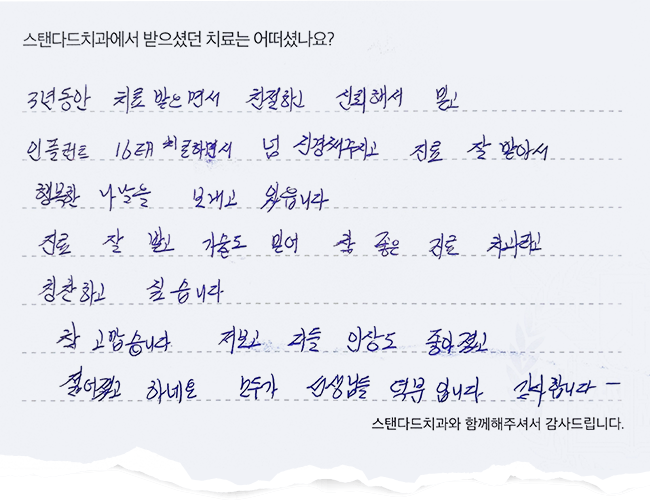 스탠다드치과에서 받으셨던 치료는 어떠셨나요?
3년동안 치료 받으면서 친절하고 신뢰해서 믿고
인플런트 16대 치료하면서 넘 신경써주시고 진료 잘 받아서
행복한 나날을 보내고 있읍니다
진료 잘 받고 기술도 믿어 참 좋은 치료 치과라고
칭찬하고 싶습니다
참 고맙습니다 저보고 다들 인상도 좋아졌고
젊어졌고 하네요 모두가 선생님들 덕분입니다 감사합니다 ㅡ
스탠다드치과와 함께해주셔서 감사드립니다.